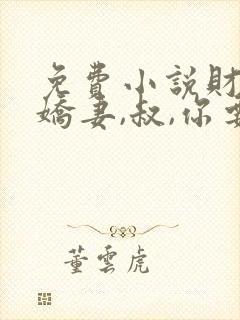 免費小說財
嬌妻,叔,你
董雲虎